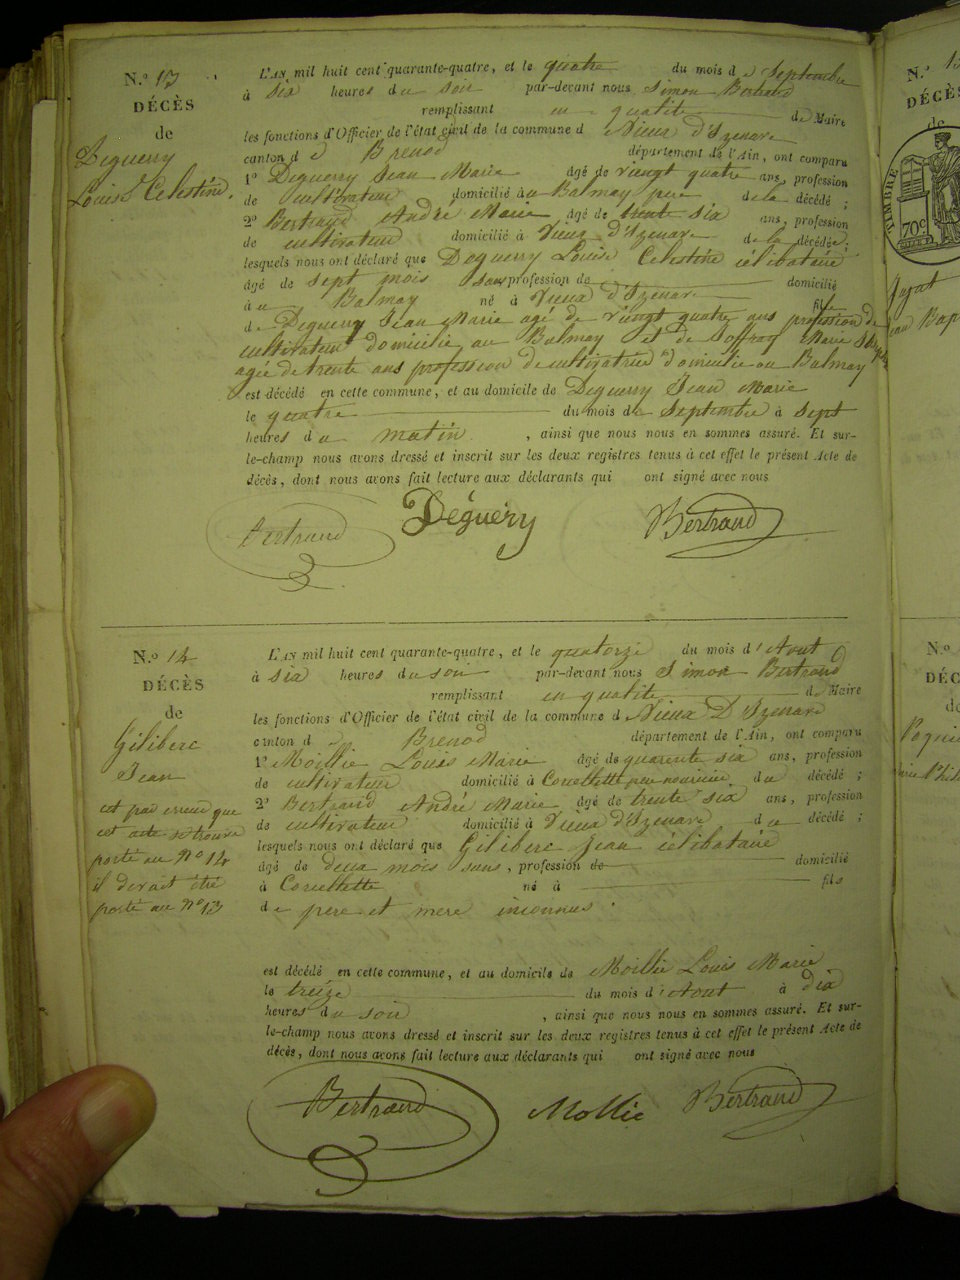 N.° 13
DÉCÈS
de
Deguerry
Louise Celestine.
L'AN mil huit cent quarante-quatre, et le quatre du mois d e Septembre
à six heures du soir par-devant nous Simon Bertrand
remplissant en qualité de Maire
les fonctions d'Officier de l'état civil de la commune d Vieux d'Izenave
canton d e Brenod département de l'Ain, ont comparu
1° Deguerry Jean Marie âgé de vingt quatre ans, profession
de cultivateur domicilié au Balmay pere de la décédé ;
2° Bertrand André Marie âgé de trente six ans, profession
de cultivateur domicilié à Vieux d'Izenave de la décédée;
lesquels nous ont déclaré que Deguerry Louise Celestine célibataire
âgé de sept mois sans profession de domicilié
à u Balmay né à Vieux d'Izenave fille
de Deguerry Jean Marie agé de vingt quatre ans profession de
cultivateur domicilié au Balmay et de Joffray Marie
agée de trente ans profession de cultivatrice domicilie au Balmay
est décédé en cette commune, et au domicile de Deguerry Jean Marie
le quatre du mois de Septembre à sept
heures du matin , ainsi que nous nous en sommes assuré. Et sur-
le-champ nous avons dressé et inscrit sur les deux registres tenus à cet effet le présent Acte de
décès, dont nous avons fait lecture aux déclarants qui ont signé avec nous
Bertrand Déguéry Bertrand
N.° 14
DÉCÈS
de
Giliberc
Jean
est par erreur que
cet acte se trouve
porté au N° 14
il devait être
porté au N° 13
L'AN mil huit cent quarante-quatre, et le quatorze du mois d'Aout
à six heures du soir par-devant nous Simon Bertrand
remplissant en qualité de Maire
les fonctions d'Officier de l'état civil de la commune d Vieux D'Izenave
canton d e Brenod département de l'Ain, ont comparu
1° Moillie Louis Marie âgé de quarente six ans, profession
de cultivateur domicilié à Corcellette pere nouricier du décédé ;
2° Bertrand André Marie âgé de trente six ans, profession
de cultivateur domicilié à Vieux d'Izenave du décédé ;
lesquels nous ont déclaré que Giliberc Jean célibataire
âgé de deux mois sans, profession de domicilié
à Corcellette né à fils
de pere et mere inconnus.
est décédé en cette commune, et au domicile de Moillie Louis Marie
le treize du mois d'Aout à dix
heures du soir , ainsi que nous nous en sommes assuré. Et sur-
le-champ nous avons dressé et inscrit sur les deux registres tenus à cet effet le présent Acte de
décès, dont nous avons fait lecture aux déclarants qui ont signé avec nous
Bertrand Mollie Bertrand
N.°
DÉCÈS
de
TIMBRE
70c
N.°